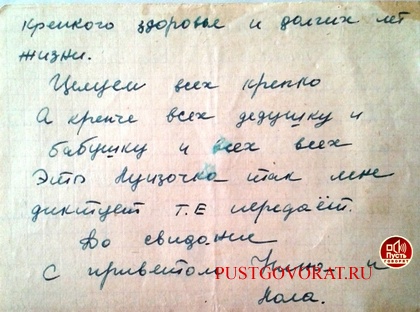 крепкого здоровье и долгих лет
жизни.
Целуем всех крепко
А крепче всех дедушку и
бабушку и всех всех
Это Луизочка так мне
диктует т.е передаёт.
До свидание
С приветом и
PUSTGOVORAT.RU
Лола.
ПУСТЬ
ГОВОРЯТ